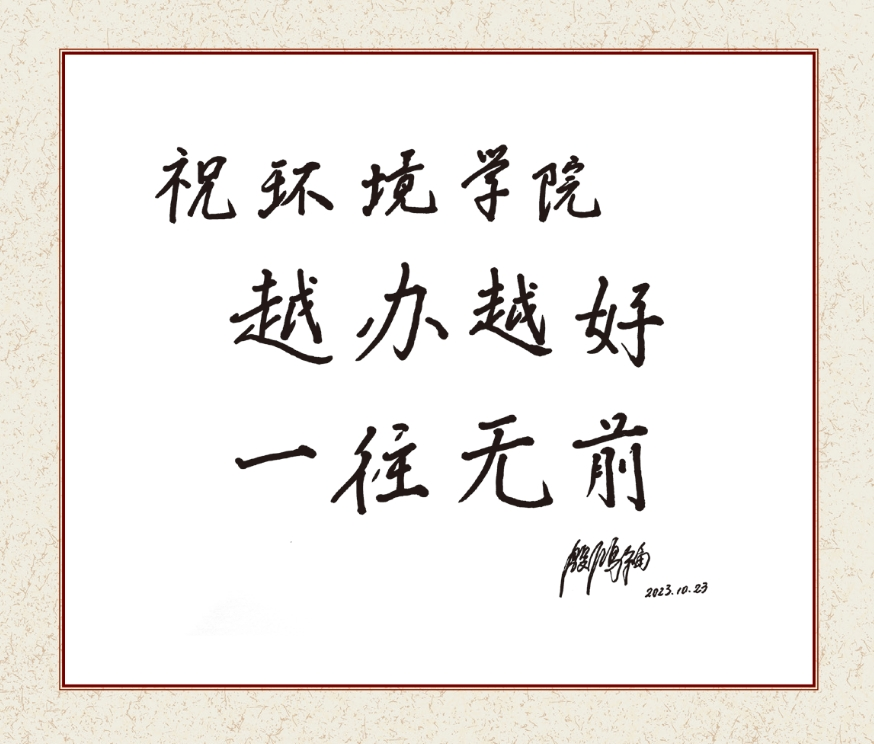 祝环境学院
越办越好
一往无前
殷鸿福
2023.10.23